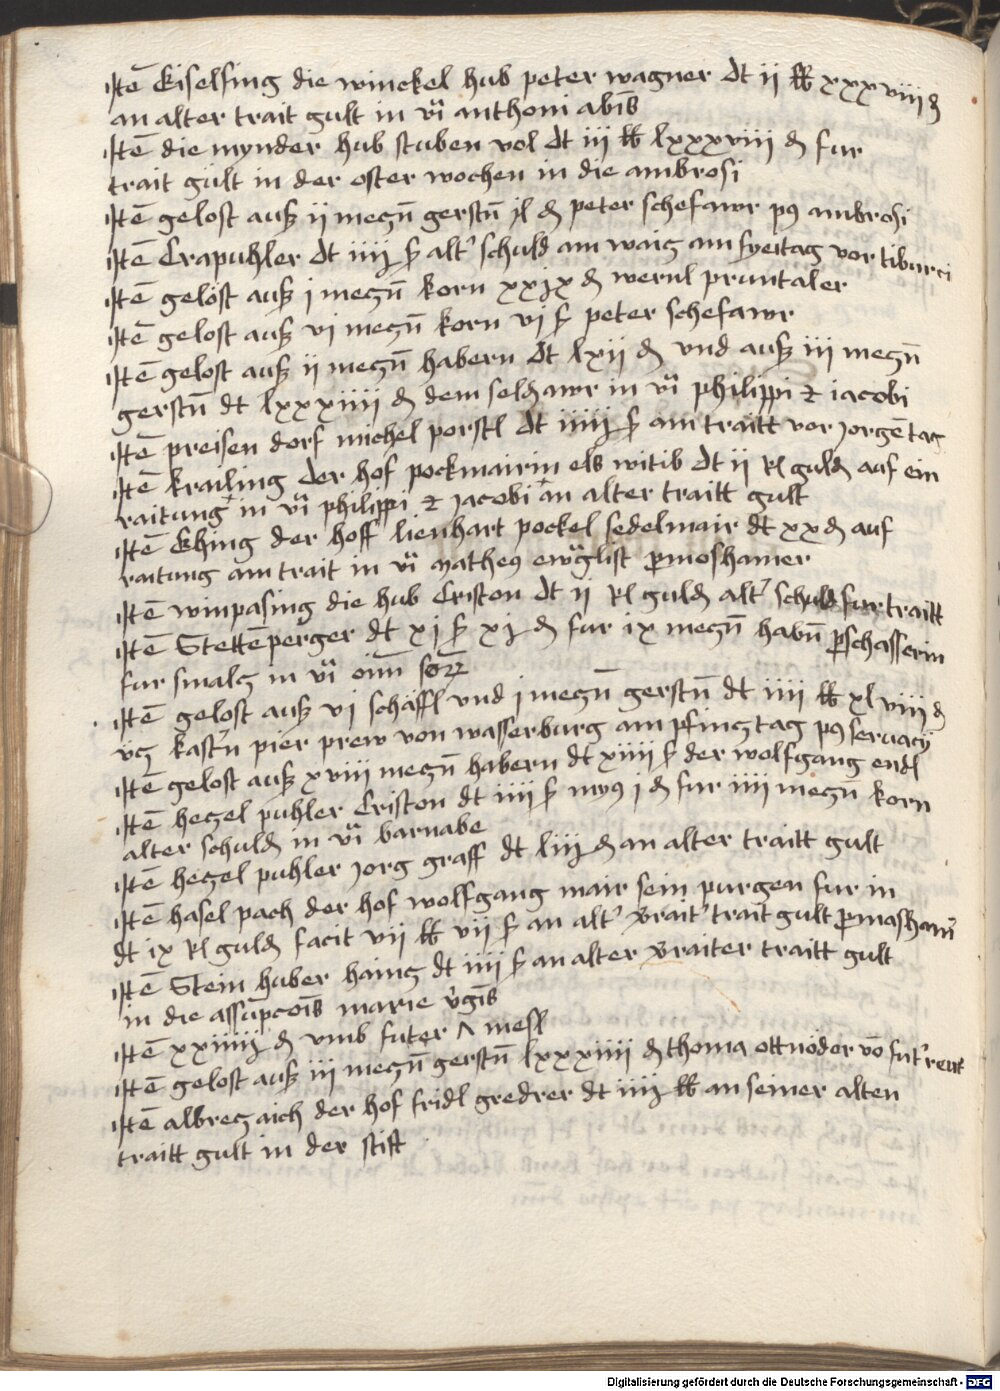 Itē Eiselfing die winckel hub peter wagner dt ij ℔ xxxviii ₰
an alter trait gult in vi͞ anthoni abi͞s
Itē die mynder hub stuben vol dt iij ℔ lxxxviii ₰ fur
trait gult in der oster wochen in die ambrosi
Itē gelost auß ij meczn̄ gerstn̄ jl ₰ peter schefawr p9 ambrosi
Itē Crapuhler dt iiij ß alt' schuld am waicz am freitag vor tiburci
Itē gelöst auß j meczn̄ korn xxjx ₰ wernl pruntaler
Itē gelost auß vi meczn̄ korn vj ß peter schefawr
Itē gelost auß ij meczn̄ habern dt lxij ₰ vnd auß iij meczn̄
gerstn̄ dt lxxxiiij ₰ dem seldnawr in vi͞ philippi et iacobi
Itē preisen dorf michel porstl dt iiiij ß am traitt vor jorgē tag
Itē krailing der hof pockmairin els witib dt ij Rl guldn auf ein
raitung in vi͞ philippi et jacobi an alter traitt gult
Itē Ehing der hoff lienhart pockel sedelmair dt xx ₰ auf
raitung am trait in vi͞ Matheus ewāglist p moshamer
Itē winpasing die hub Criston dt ij Rl guldn alt' schuld fur traitt
Itē Stettēperger dt xj ß xj ₰ fur ix meczn̄ habn̄ p schafferin
fur smalcz in vi͞ oim̄ scōr
Itē gelost auß vi schäffl vnd j meczn̄ gerstn̄ dt iiij ℔ xlviii ₰
vcz kastn̄ pier prew von wasserburg am pfincztag p9 seruacij
Itē gelost auß xviii meczn̄ habern dt xiiij ß der wolfgang endl
Itē heczel puhler Criston dt iiij ß my9 j ₰ fur iiij meczn korn
alter schuldn in vi͞ barnabe
Itē heczel puhler jorg graff dt liij ₰ an alter traitt gult
Itē hasel pach der hof wolfgang mair sein purgen fur in
dt ix Rl guldn facit vij ℔ vij ß an alt' vrait' trait gult p mashām
Itē Stein huber haincz dt iiij ß an alter vraiter traitt gult
in die assūpcōis marie v'gīs
Itē xxiiiij ₰ vmb futer ʌ mesl
Itē gelost auß iij meczn̄ gerstn̄ lxxxiiij ₰ thoma ottnöder vō fut'reut
Itē albrecz aich der hof fridl gredrer dt iiij ℔ an seiner alten
traitt gult in der stift
Digitalisierung gefördert durch die Deutsche Forschungsgemeinschaft - DFG